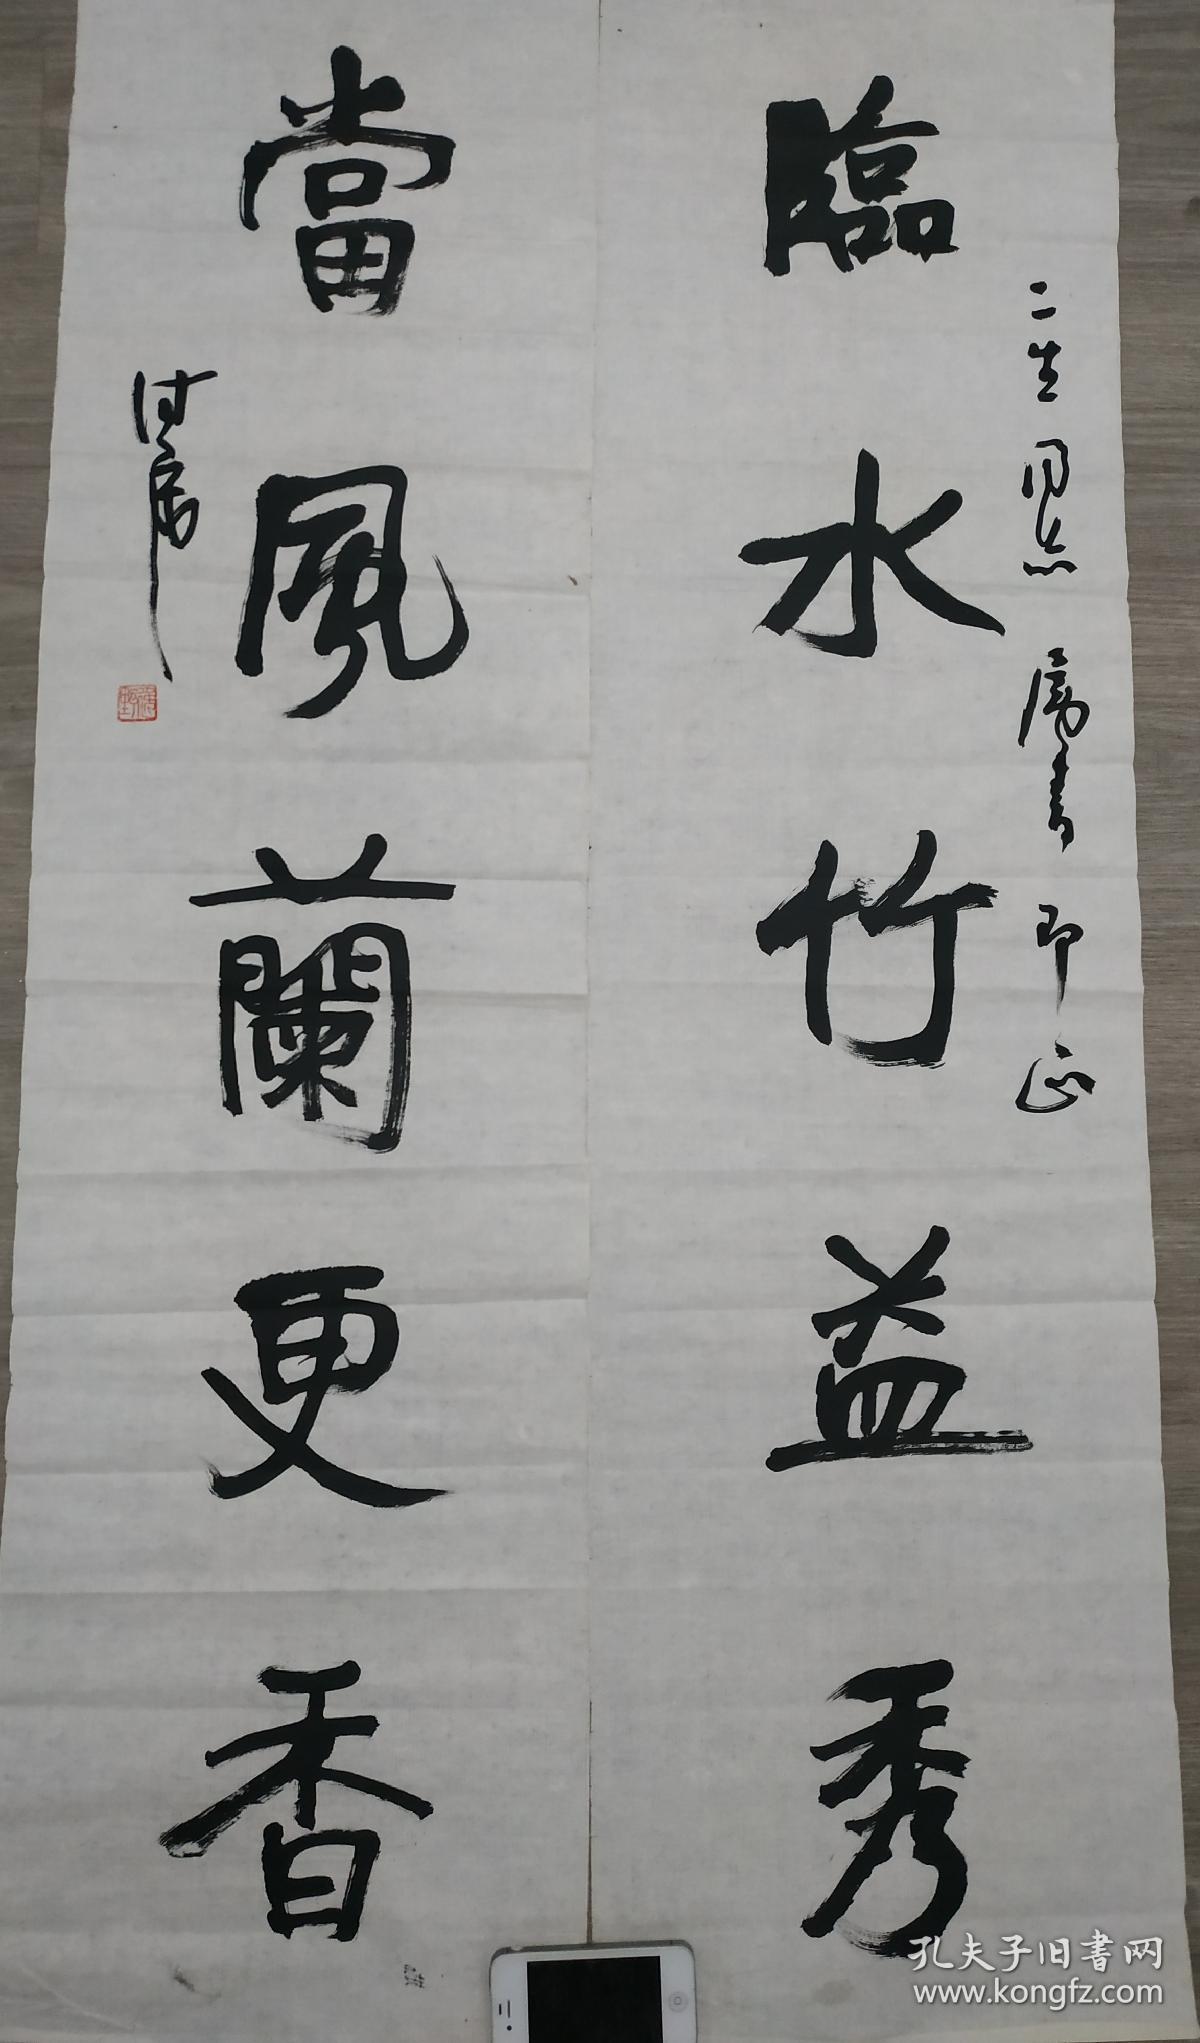 臨水竹益秀
二生同志属書即正
當風蘭更香
孔夫子旧書网
www.kongfz.com